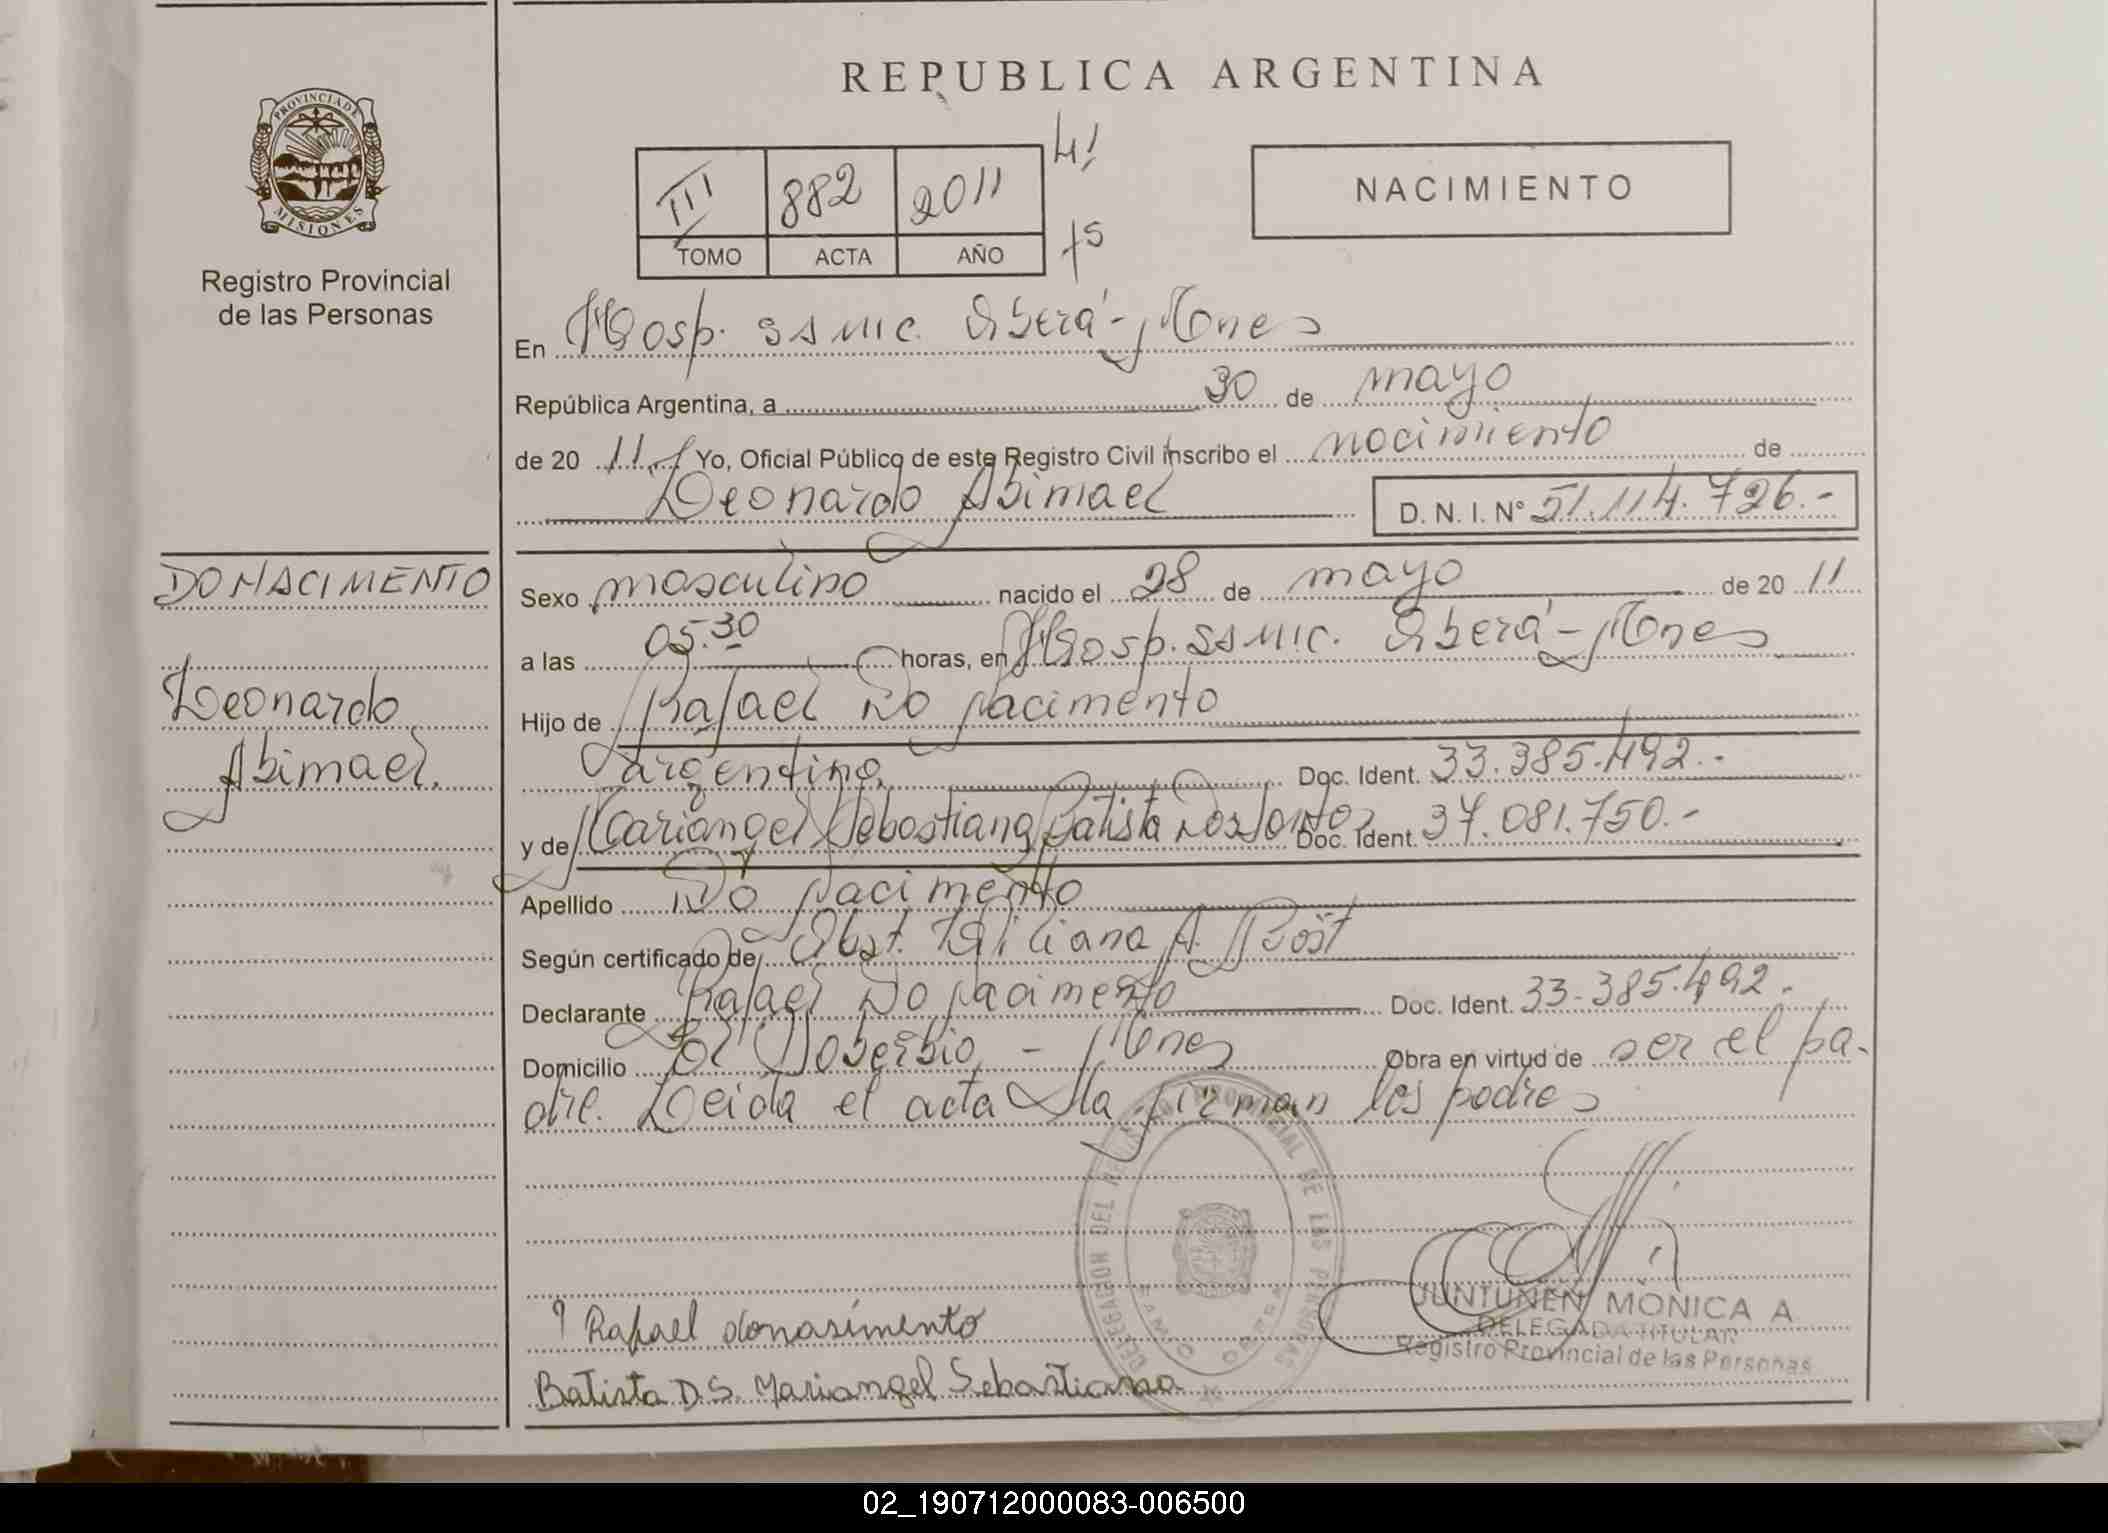 REPUBLICA ARGENTINA
PROVINCIA DE
MISIONES
Registro Provincial
de las Personas
III 882 2011
TOMO ACTA AÑO
NACIMIENTO
En Hosp. SAMIC. Oberá - Mnes
República Argentina, a 30 de mayo
de 20 11 Yo, Oficial Público de este Registro Civil inscribo el nacimiento de
Leonardo Abimael D. N. I. N° 51.114.726.-
DO NACIMENTO
Leonardo
Abimael.
Sexo masculino nacido el 28 de mayo de 20 11
a las 05.30 horas, en Hosp. SAMIC. Oberá - Mnes
Hijo de Rafael Do Nacimento
argentino. Doc. Ident. 33.385.492.-
y de Mariangel Sebastiana Batista Dos Santos Doc. Ident. 37.081.750.-
Apellido Do Nacimento
Según certificado de Obst. Liliana A. Post
Declarante Rafael Do Nacimento Doc. Ident. 33.385.492.
Domicilio El Soberbio - Mnes Obra en virtud de ser el pa-
dre. Leida el acta la firman los padres
Rafael donasimento
Batista D.S. Mariangel Sebastiana
JUNTUNEN MONICA A
DELEGADA TITULAR
Registro Provincial de las Personas
02_190712000083-006500